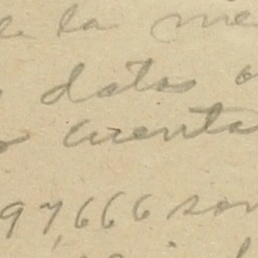 de la me
datos
cuenta
97,666 son